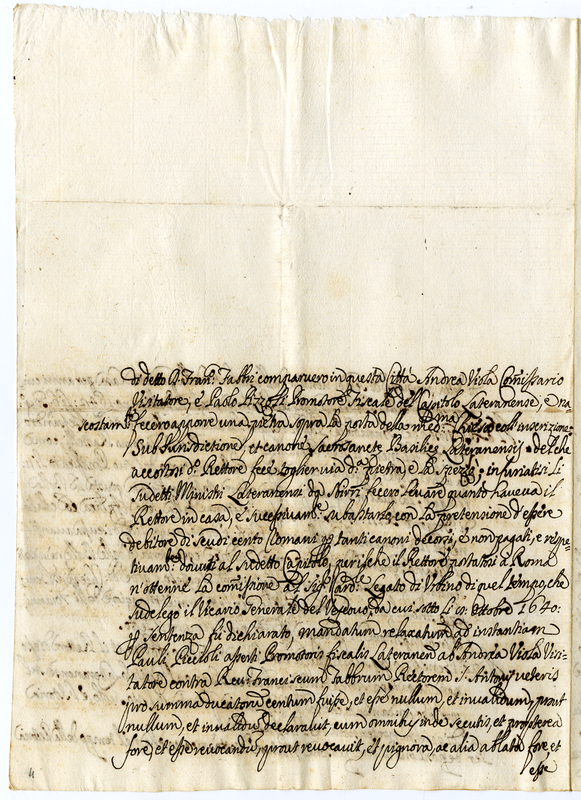 di detto D. Fran.º Fabbri comparuero in questa Città Andrea Viola Comissario
Visitatore, e Paolo Pizzoli Promotore Fiscale del Capitolo Lateranense, e na-
scostam.te fecero apporre una pietra sopra la porta della med.ma Chiesa coll'inscrizione
Sub Jurisdictione, et canone Sacrosancte Basilice Lateranensis, del che
accortosi d.º Rettore fece toglier via d.ª pietra e la spezzò; infuriatisi li
sudetti Ministri Lateranensi da sbirri fecero levare quanto haveva il
Rettore in casa, e successivam.te subastarlo con la pretensione d'essere
debitore di scudi cento Romani p tanti canoni decorsi, e non pagati, e rispe-
tivam.te dovuti al sudetto Capitolo, per il che il Rettore portatosi à Roma
n'ottenne la comissione al Sig.r Card.le Legato di Urbino di quel tempo, che
sudelegò il Vicario Generale del Vescovo, da cui sotto li Ottobre 1640:
p sentenza fù dichiarato, mandatum relaxatum ad instantiam
Pauli Piccioli asserti Promotoris fiscalis Lateranen ab Andrea Viola Visi-
tatore contra Rev. Franciscum Fabbrum Rectorem S. Antonij veteris
pro summa ducatorum centum fuisse, et esse nullum, et invalidum, prout
nullum, et invalidum declaravit, cum omnibus inde secutis, et propterea
fore, et esse revocandum, prout revocavit, et pignora, ac alia ablata fore, et
esse